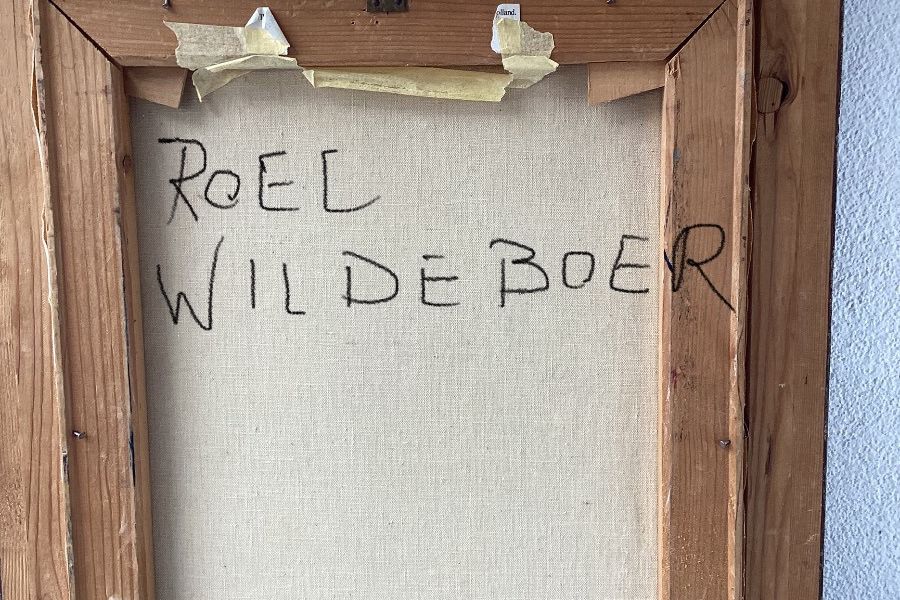 olland.
ROEL
WILDEBOER